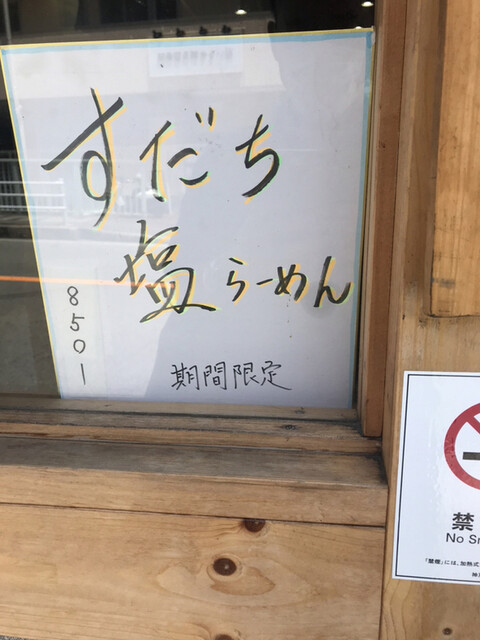 すだち
塩らーめん
850ー
期間限定
禁
No Sm
「禁煙」には、加熱式